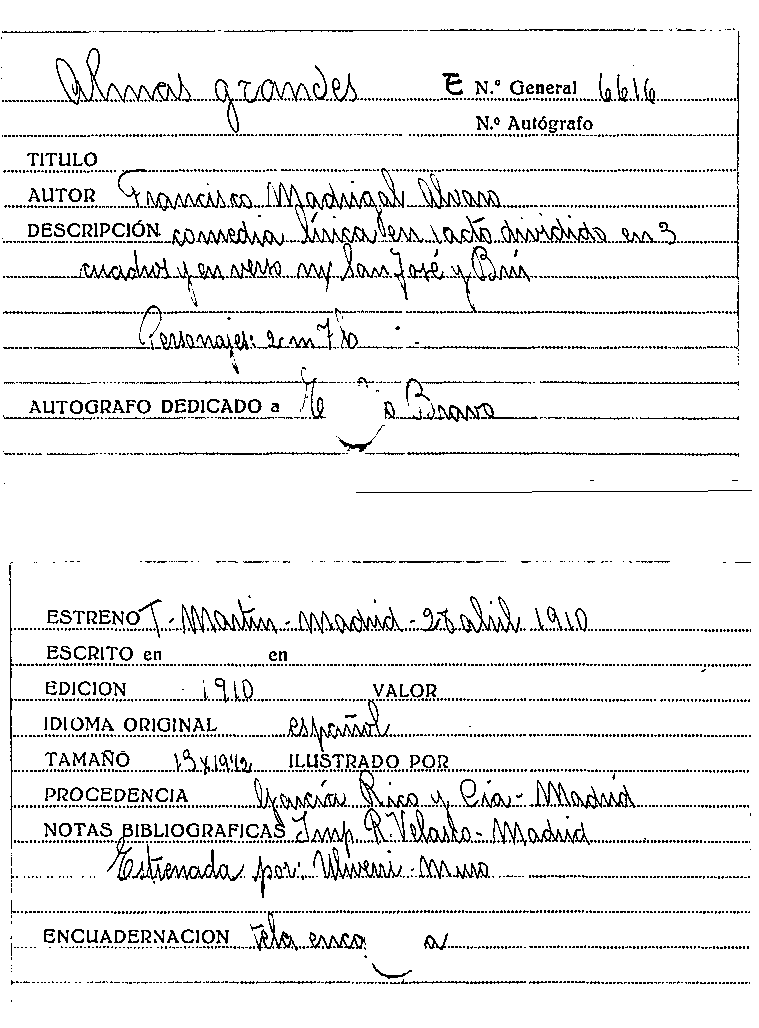 Almas grandes E N.º General 6616
N.º Autógrafo
TITULO
AUTOR Francisco Madrigal Alvaro
DESCRIPCIÓN comedia lírica en 1 acto dividido en 3
cuadros y en verso m/ San José y Brú
Personajes: 2 m 7 h
AUTOGRAFO DEDICADO a Bravo
ESTRENO T. Martin - Madrid - 28 abril 1910
ESCRITO en en
EDICION 1910 VALOR
IDIOMA ORIGINAL español
TAMAÑO 13x19 1/2 ILUSTRADO POR
PROCEDENCIA García Rico y Cía - Madrid
NOTAS BIBLIOGRAFICAS Imp. R. Velasco - Madrid
Estrenada por: Uliverri - Muro
ENCUADERNACION tela